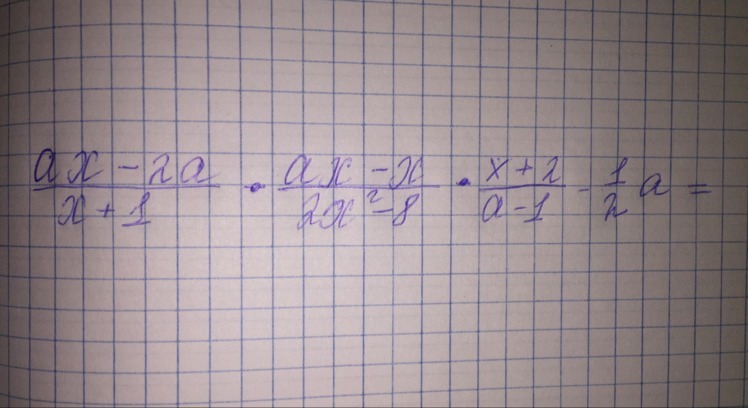 (ax - 2a)/(x + 1) · (ax - x)/(2x² - 8) · (x + 2)/(a - 1) - 1/2 a =